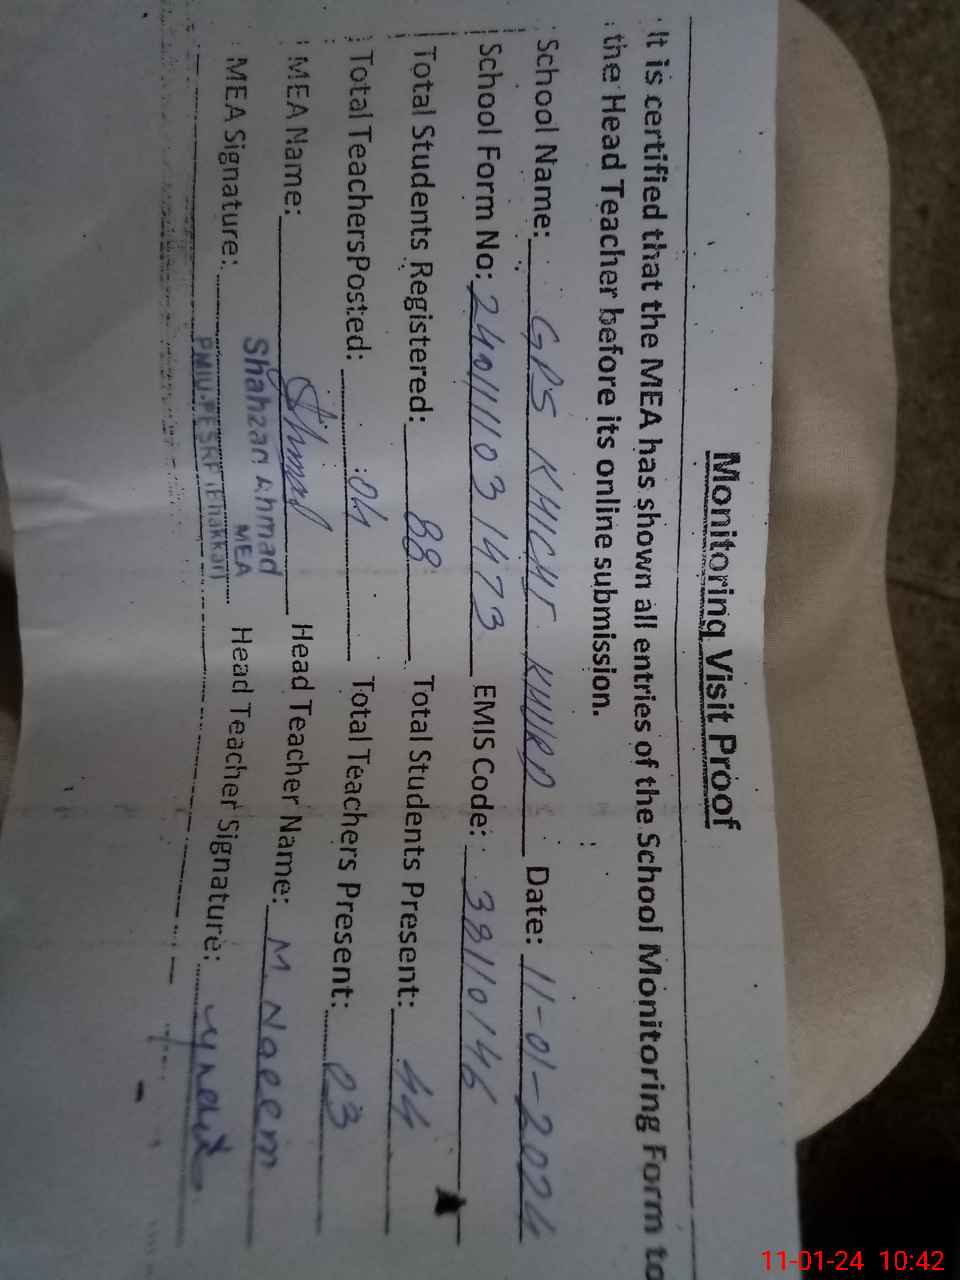 Monitoring Visit Proof
It is certified that the MEA has shown all entries of the School Monitoring Form to
the Head Teacher before its online submission.
School Name: GPS KHICHI KHURD Date: 11-01-2024
School Form No: 2401111031473 EMIS Code: 38110146
Total Students Registered: 88 Total Students Present: 44
Total TeachersPosted: 04 Total Teachers Present: 03
MEA Name: Ahmad Head Teacher Name: M. Naeem
MEA Signature: Head Teacher Signature:
Shahzad Ahmad
MEA
PMIU-PESRP (Bhakkar)
11-01-24 10:42